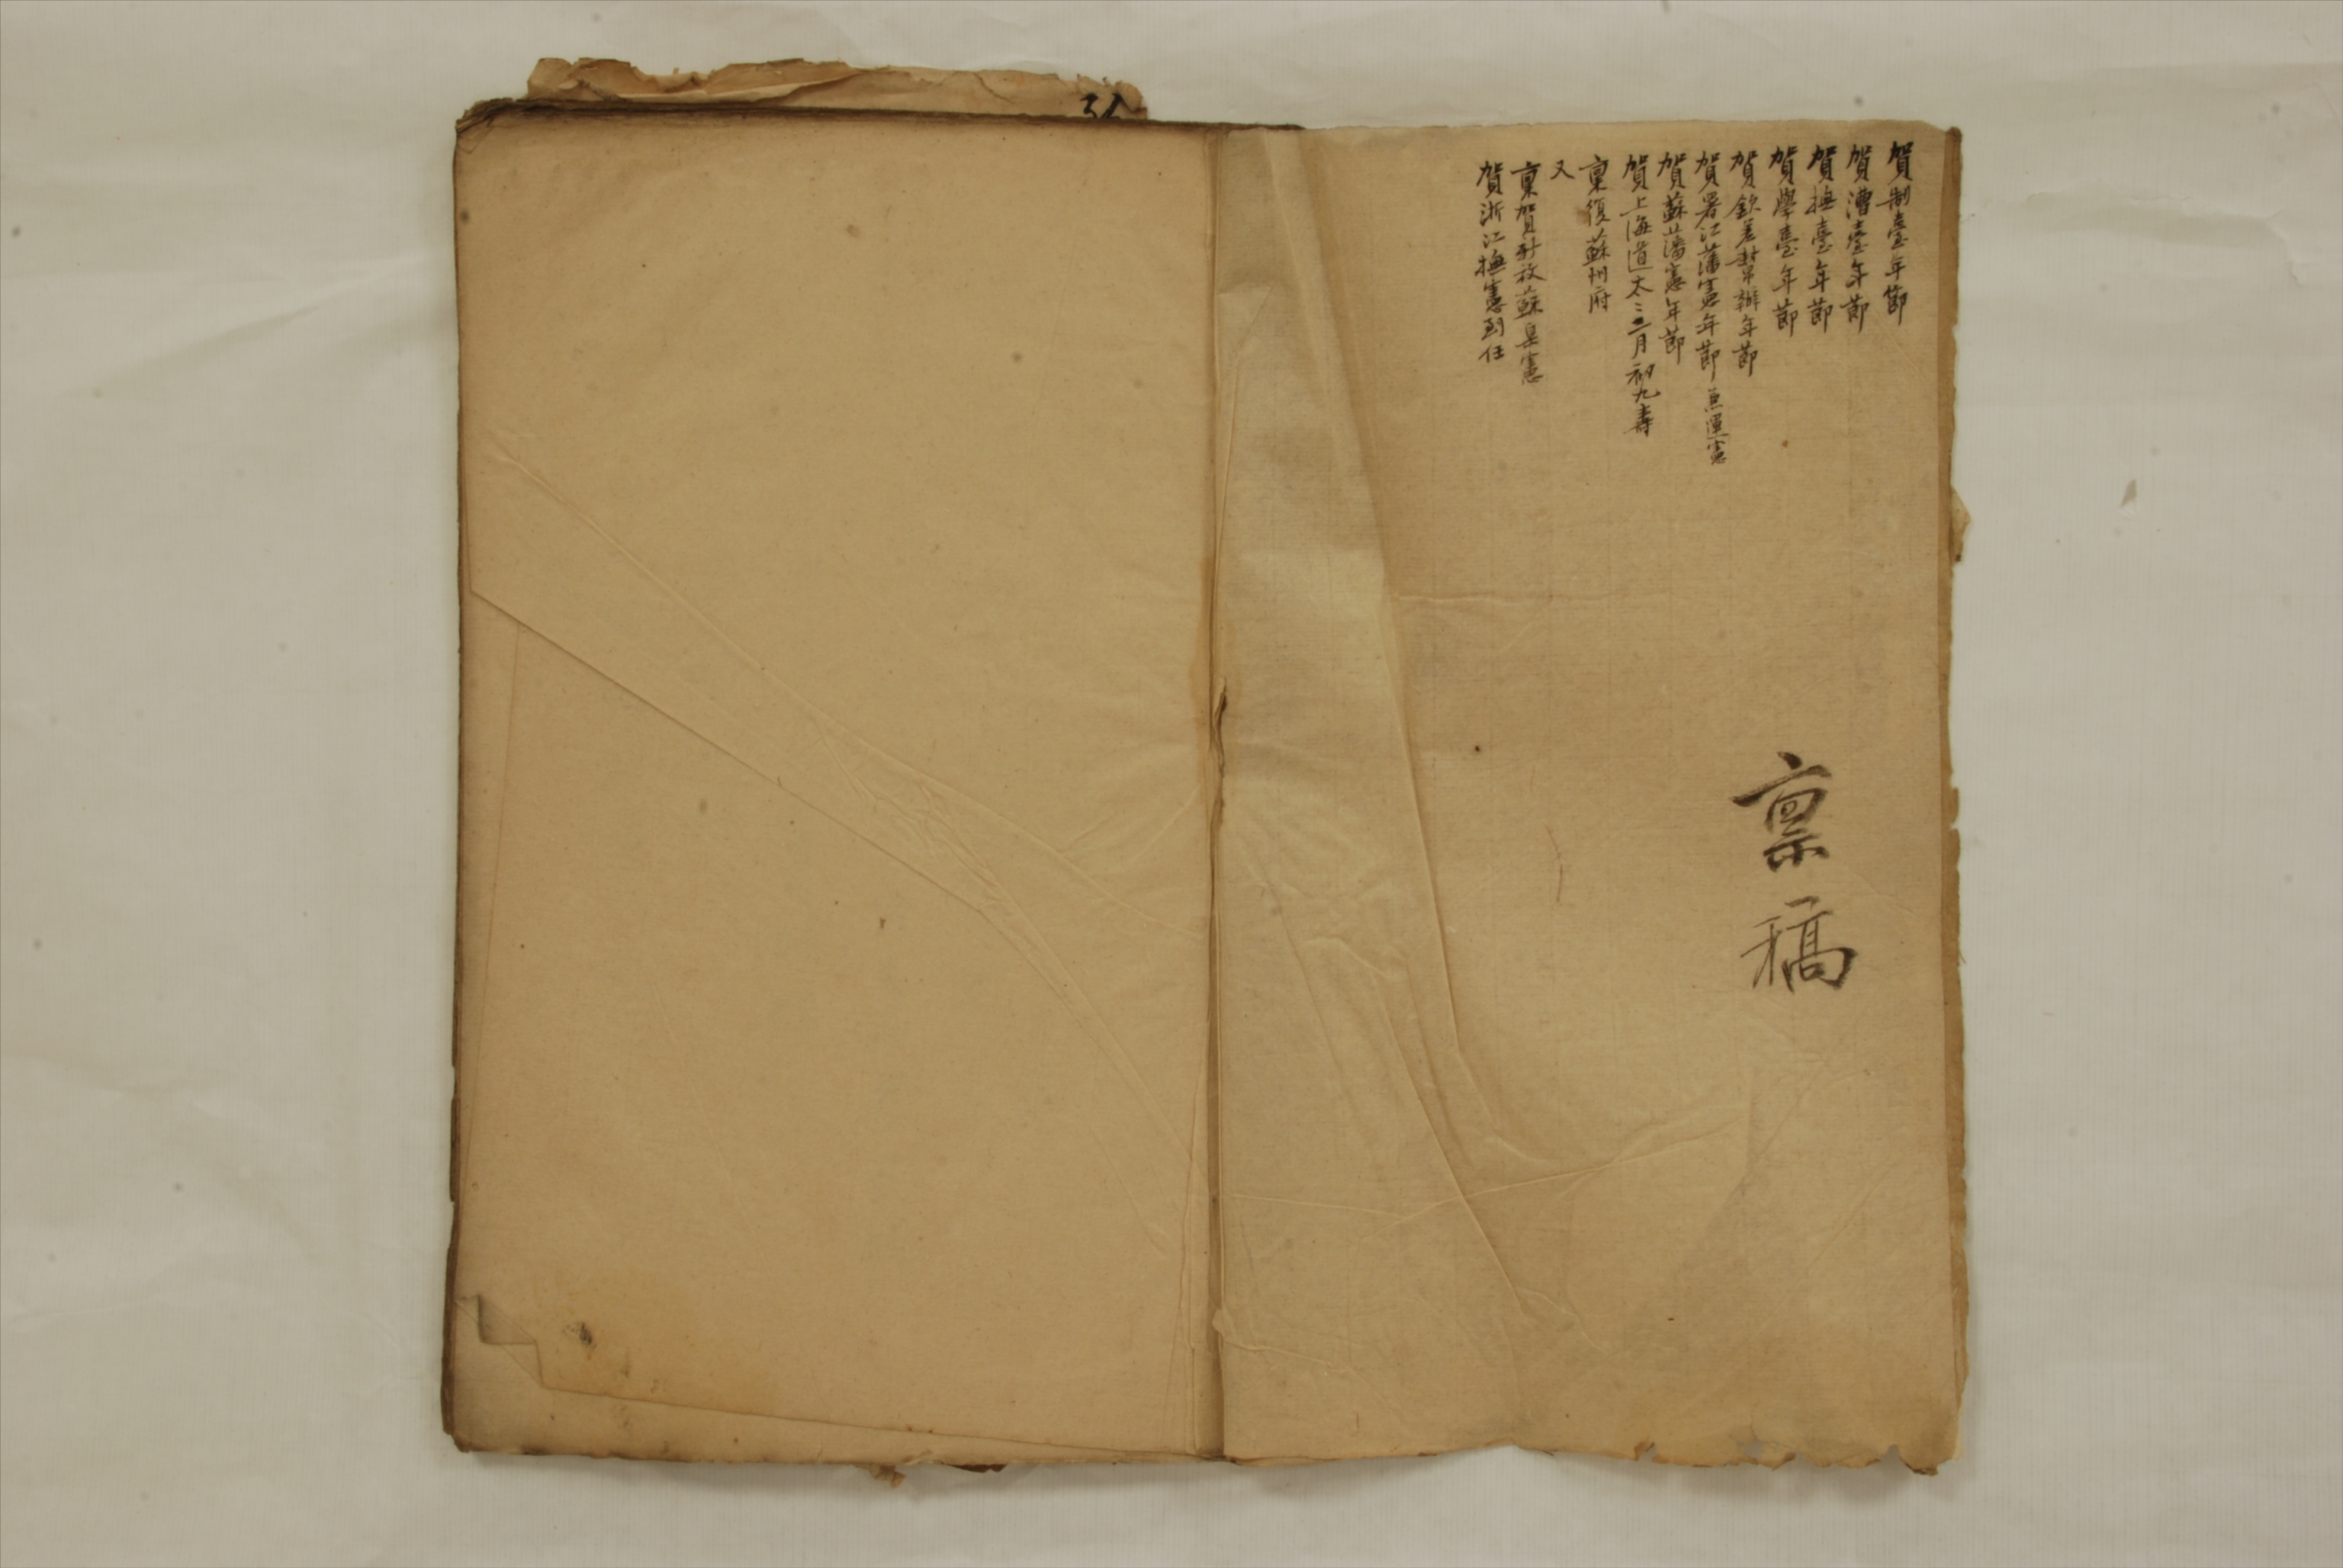 賀制臺年節
賀漕臺年節
賀撫臺年節
賀學臺年節
賀欽差幫辦年節
賀署江藩憲年節 兼運憲
賀蘇藩憲年節
賀上海道太〻二月初九壽
稟復蘇州府
又
稟賀新放蘇臬憲
賀浙江撫憲到任
稟稿